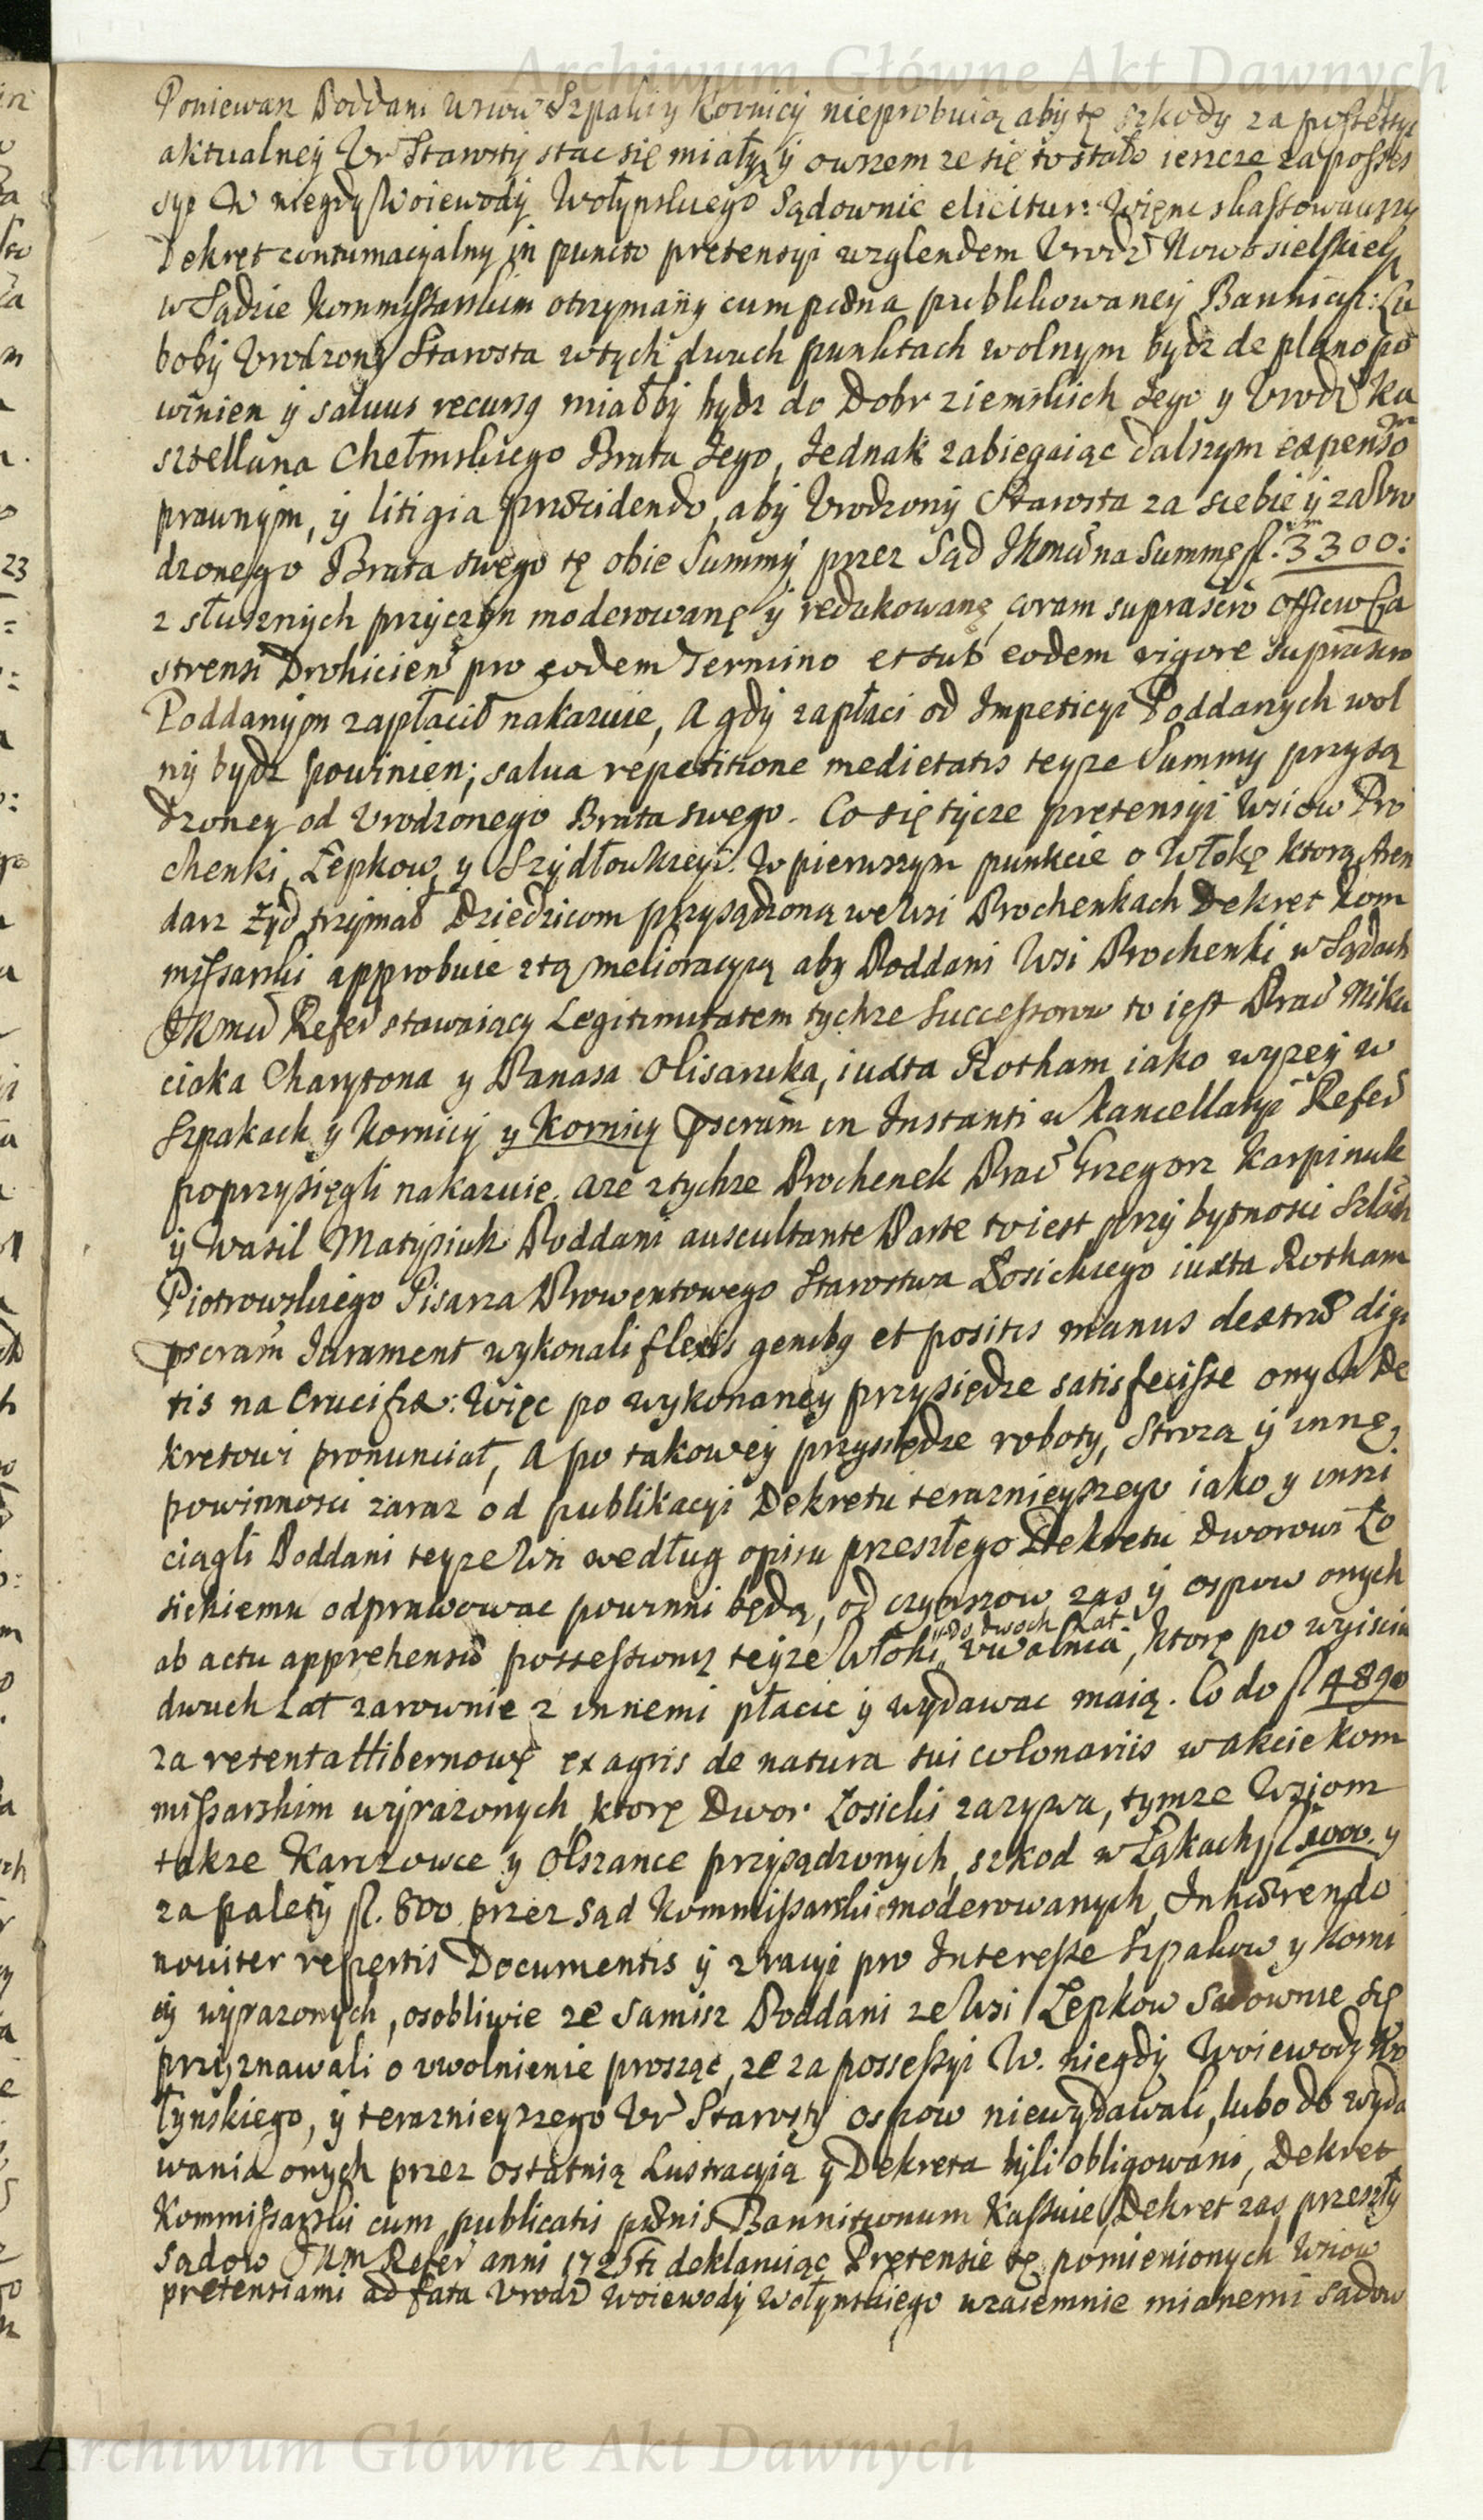 Archiwum Główne Akt Dawnych
Poniewasz Poddani Wsiow Szpaki y Kornicy nieprobuią aby te szkody za possessyi
aktualney Ur Starosty stac się miały y owszem ze się to stało ieszcze za posses
syi W niegdy Woiewody Wołynskiego Sądownie elicitur: Więc skassowawszy
Dekret contumacyalny in puncto pretensyi wzglendem Urodz Nowosielskiey
w Sądzie Kommissarskim otrzymany cum pæna publikowaney Bannicyi: Lu
boby Urodzony Starosta wtych dwuch punktach wolnym bydz de plano po
winien y salvus recursq miałby bydz do Dobr ziemskich Jego y Urodz Ka
sztellana Chełmskiego Brata Jego, Jednak zabiegaiąc dalszym expenso
prawnym, y litigia præcidendo, aby Urodzony Starosta za siebie y za Uro
dzonego Brata swego tę obie Summy przez Sąd JKmci na Summę fl. 3300:
z słusznych przyczyn moderowanę y redukowanę coram suprascro Officio Ca
strensi Drohicien pro eodem Termino et sub eodem rigore suprascro
Poddanym zapłacił nakazuie, A gdy zapłaci od Impeticyi Poddanych wol
ny bydz powinien; salva repetitione medietatis teyze Summy przysą
dzoney od Urodzonego Brata swego. Co się tycze pretensyi Wsiow Pro
chenki, Łepkow, y Szydłowkzeyi. W pierwszym punkcie o Włokę ktorą Aren
darz Zyd trzymał Dziedzicom przysądzoną we Wsi Prochenkach Dekret Kom
missarski approbuie ztą melioracyą aby Poddani Wsi Prochenki w Sądach
JKmci Refer stawaiący Legitimitatem tychze Successorow to iest Prac Miku
ciaka Charytona y Panasa Olisaruka, iuxta Rotham iako wyzey w
Szpakach y Kornicy y Kornicy pscram in Instanti w kancellaryi Refer
poprzysięgli nakazuie. Aze ztychze Prochenek Prac Grzegorz Karpinuk
y Wasil Matysiuk Poddani auscultante Parte to iest przy bytnosci Szlach
Piotrowskiego Pisarza Prowentowego Starostwa Łosickiego iuxta Rotham
pscram Jurament wykonali flexis genibq et positis manus dextræ digi
tis na Crucifix: Więc po wykonaney przysiędze satisfecisse onych De
kretowi pronunciat, A po takowey przysiędze roboty, Stroza y inne
powinnosci zaraz od publikacyi Dekretu terazniejszego iako y inni
ciągli Poddani teyze Wsi według opisu przeszłego Dekretu Dworowi Ło
sickiemu odprawowac powinni będą, od czynszow zas y ospow onych
ab actu apprehensæ possessionis teyze Włoki, do dwoch Lat uwalnia, ktore po wyisciu
dwuch Lat zarownie z innemi płacic y wydawac maią. Co do fl 4890
za retenta Hibernowe ex agris de natura sui colonariis w akcie kom
missarskim wyrazonych, ktore Dwor Łosicki zazywa, tymze Wsiom
takze Karczowce y Olszance przysądzonych, szkod w Łąkach fl 1000. y
za palety fl. 800 przez Sąd Kommissarski moderowanych, Inhærendo
noviter repertis Documentis y zracyi pro Interesse Szpakow y Korni
cy wyrazonych, osobliwie ze Samisz Poddani ze Wsi Łepkow Sądownie się
przyznawali o uwolnienie prosząc, ze za possessyi W. niegdy Woiewody Wo
łynskiego, y teraznieyszego Ur Starosty ospow niewydawali, lubo do wyda
wania onych przez ostatnią Lustracyią y Dekreta byli obligowani, Dekret
Kommissarski cum publicatis pænis Bannitionum Kassuie, Dekret zas przeszły
Sądow JKM Refer anni 1725ti deklaruiąc Pretensie te pomienionych Wsiow
pretensiami ad fata Urodz Woiewody Wołynskiego wzaiemnie mianemi Sądow
Archiwum Główne Akt Dawnych